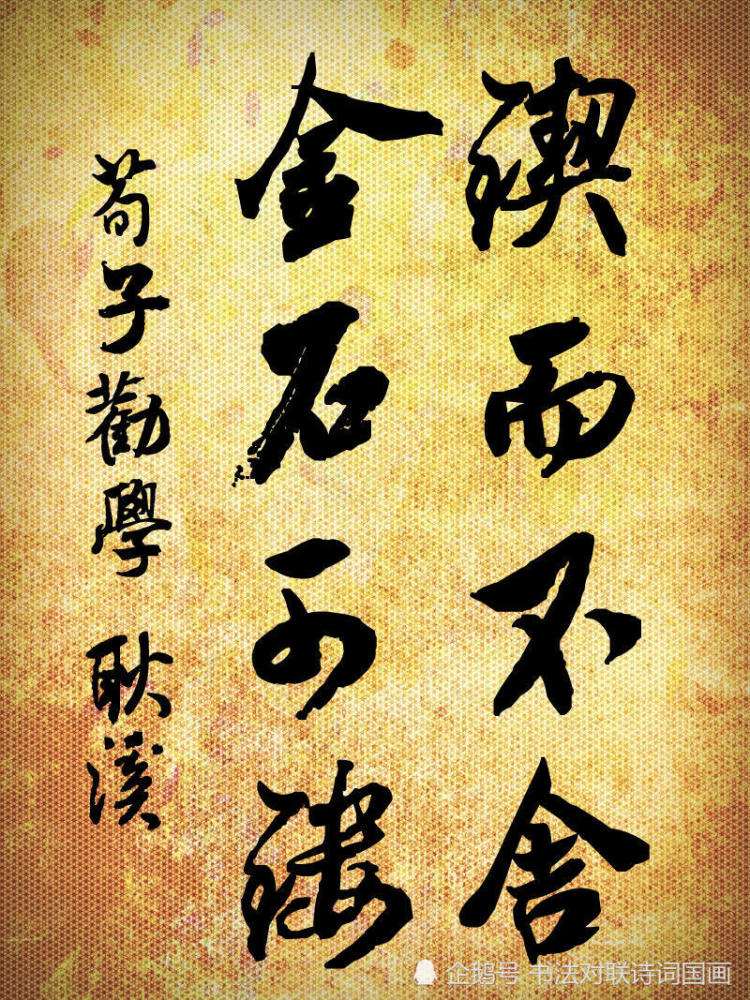 锲而不舍
金石可镂
荀子勸學 耿溪
企鹅号 书法对联诗词国画